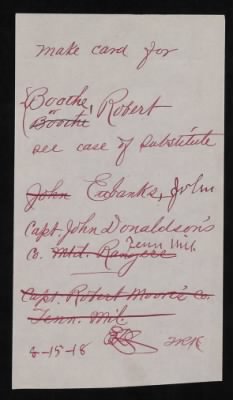 make card for
Boothe, Robert
or
Boothe
see case of substitute
John Eubanks, John
Capt. John Donaldson's
Tenn Mil.
Co. Mtd. Rangers
Capt. Robert Moore's Co.
Tenn. Mil.
8-15-18